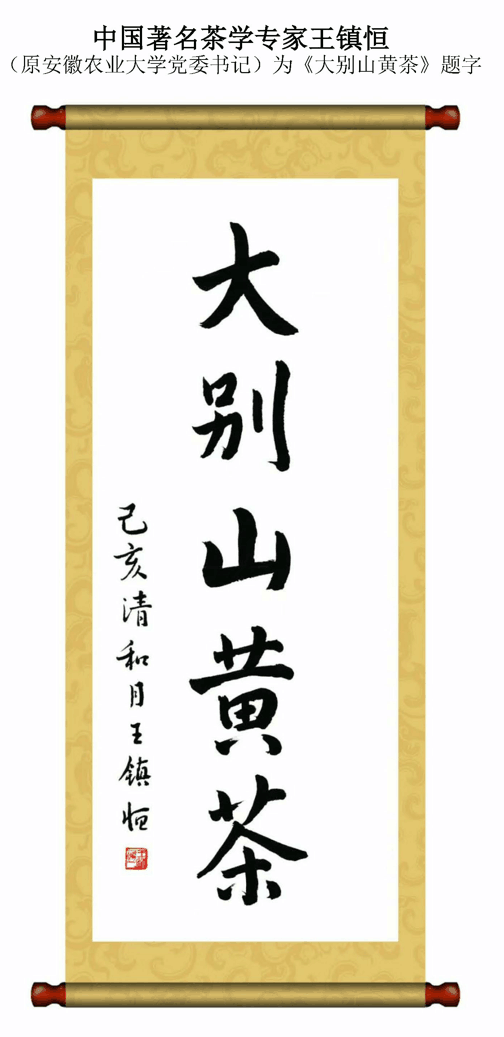 中国著名茶学专家王镇恒
（原安徽农业大学党委书记）为《大别山黄茶》题字
大别山黄茶
己亥清和月王镇恒